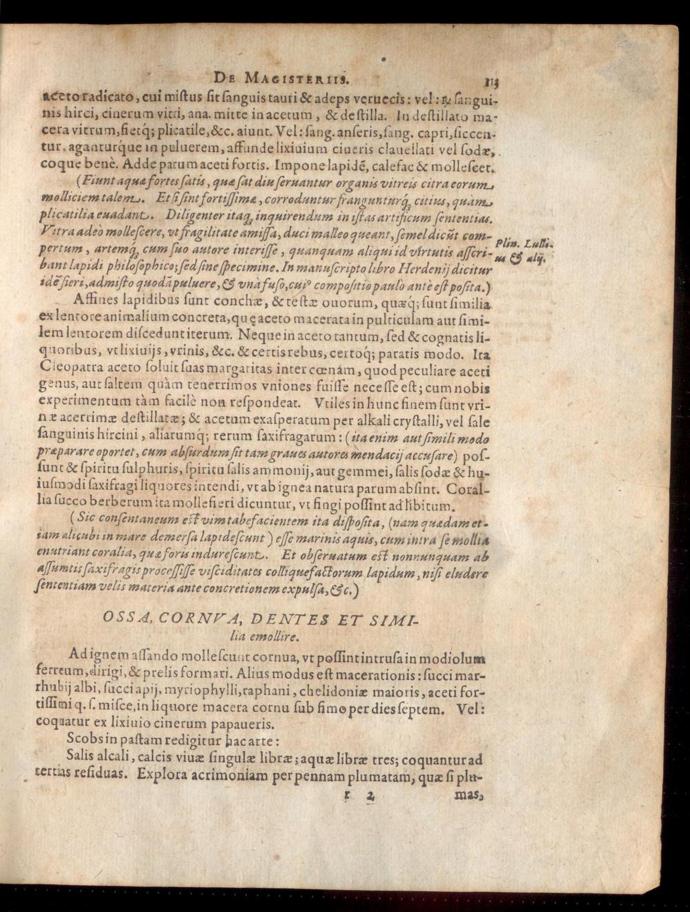 DE MAGISTERIIS. 113
aceto radicato, cui mistus sit sanguis tauri & adeps veruecis: vel: ℞ sangui-
nis hirci, cinerum vitri, ana. mitte in acetum, & destilla. In destillato ma-
cera vitrum, fietq; plicatile, &c. aiunt. Vel: sang. anseris, sang. capri, siccen-
tur. aganturque in puluerem, affunde lixiuium cineris clauellati vel sodæ,
coque benè. Adde parum aceti fortis. Impone lapidē, calefac & mollescet.
(Fiunt aquæ fortes satis, quæ sat diu seruantur organis vitreis citra eorum
molliciem talem. Et si sint fortissimæ, corroduntur frangunturq́; citius, quam
plicatilia euadant. Diligenter itaq; inquirendum in istas artificum sententias.
Vitra adeò mollescere, vt fragilitate amissa, duci malleo queant, semel dicūt com-
pertum, artemq́; cum suo autore interisse, quanquam aliqui id virtutis asscri-
bant lapidi philosophico; sed sine specimine. In manuscripto libro Herdenij dicitur
idē fieri, admisto quodā puluere, & vnà fuso, cuiꝰ compositio paulo antè est posita.)
Plin. Lulli-
us & alij.
Affines lapidibus sunt conchæ, & testæ ouorum, quæq; sunt similia
ex lentore animalium concreta, quę aceto macerata in pulticulam aut simi-
lem lentorem discedunt iterum. Neque in aceto tantum, sed & cognatis li-
quoribus, vt lixiuijs, vrinis, &c. & certis rebus, certoq; paratis modo. Ita
Cleopatra aceto soluit suas margaritas inter cœnam, quod peculiare aceti
genus, aut saltem quàm tenerrimos vniones fuisse necesse est; cum nobis
experimentum tàm facilè non respondeat. Vtiles in hunc finem sunt vri-
næ acerrimæ destillatæ; & acetum exasperatum per alkali crystalli, vel sale
sanguinis hircini, aliarumq; rerum saxifragarum: (ita enim aut simili modo
præparare oportet, cum absurdum sit tam graues autores mendacij accusare) pos-
sunt & spiritu sulphuris, spiritu salis ammonij, aut gemmei, salis sodæ & hu-
iusmodi saxifragi liquores intendi, vt ab ignea natura parum absint. Coral-
lia succo berberum ita mollefieri dicuntur, vt fingi possint ad libitum.
(Sic consentaneum est vim tabefacientem ita disposita, (nam quædam et-
iam alicubi in mare demersa lapidescunt) esse marinis aquis, cum intra se mollia
enutriant coralia, quæ foris indurescunt. Et obseruatum est nonnunquam ab
assumtis saxifragis processisse visciditates colliquefactorum lapidum, nisi eludere
sententiam velis materia ante concretionem expulsa, &c.)
OSSA, CORNVA, DENTES ET SIMI-
lia emollire.
Ad ignem assando mollescunt cornua, vt possint intrusa in modiolum
ferreum, dirigi, & prelis formari. Alius modus est macerationis: succi mar-
rhubij albi, succi apij, myriophylli, raphani, chelidoniæ maioris, aceti for-
tissimi q. s. misce, in liquore macera cornu sub fimo per dies septem. Vel:
coquatur ex lixiuio cinerum papaueris.
Scobs in pastam redigitur hac arte:
Salis alcali, calcis viuæ singulæ libræ; aquæ libræ tres; coquantur ad
tertias residuas. Explora acrimoniam per pennam plumatam, quæ si plu-
r 2 mas,